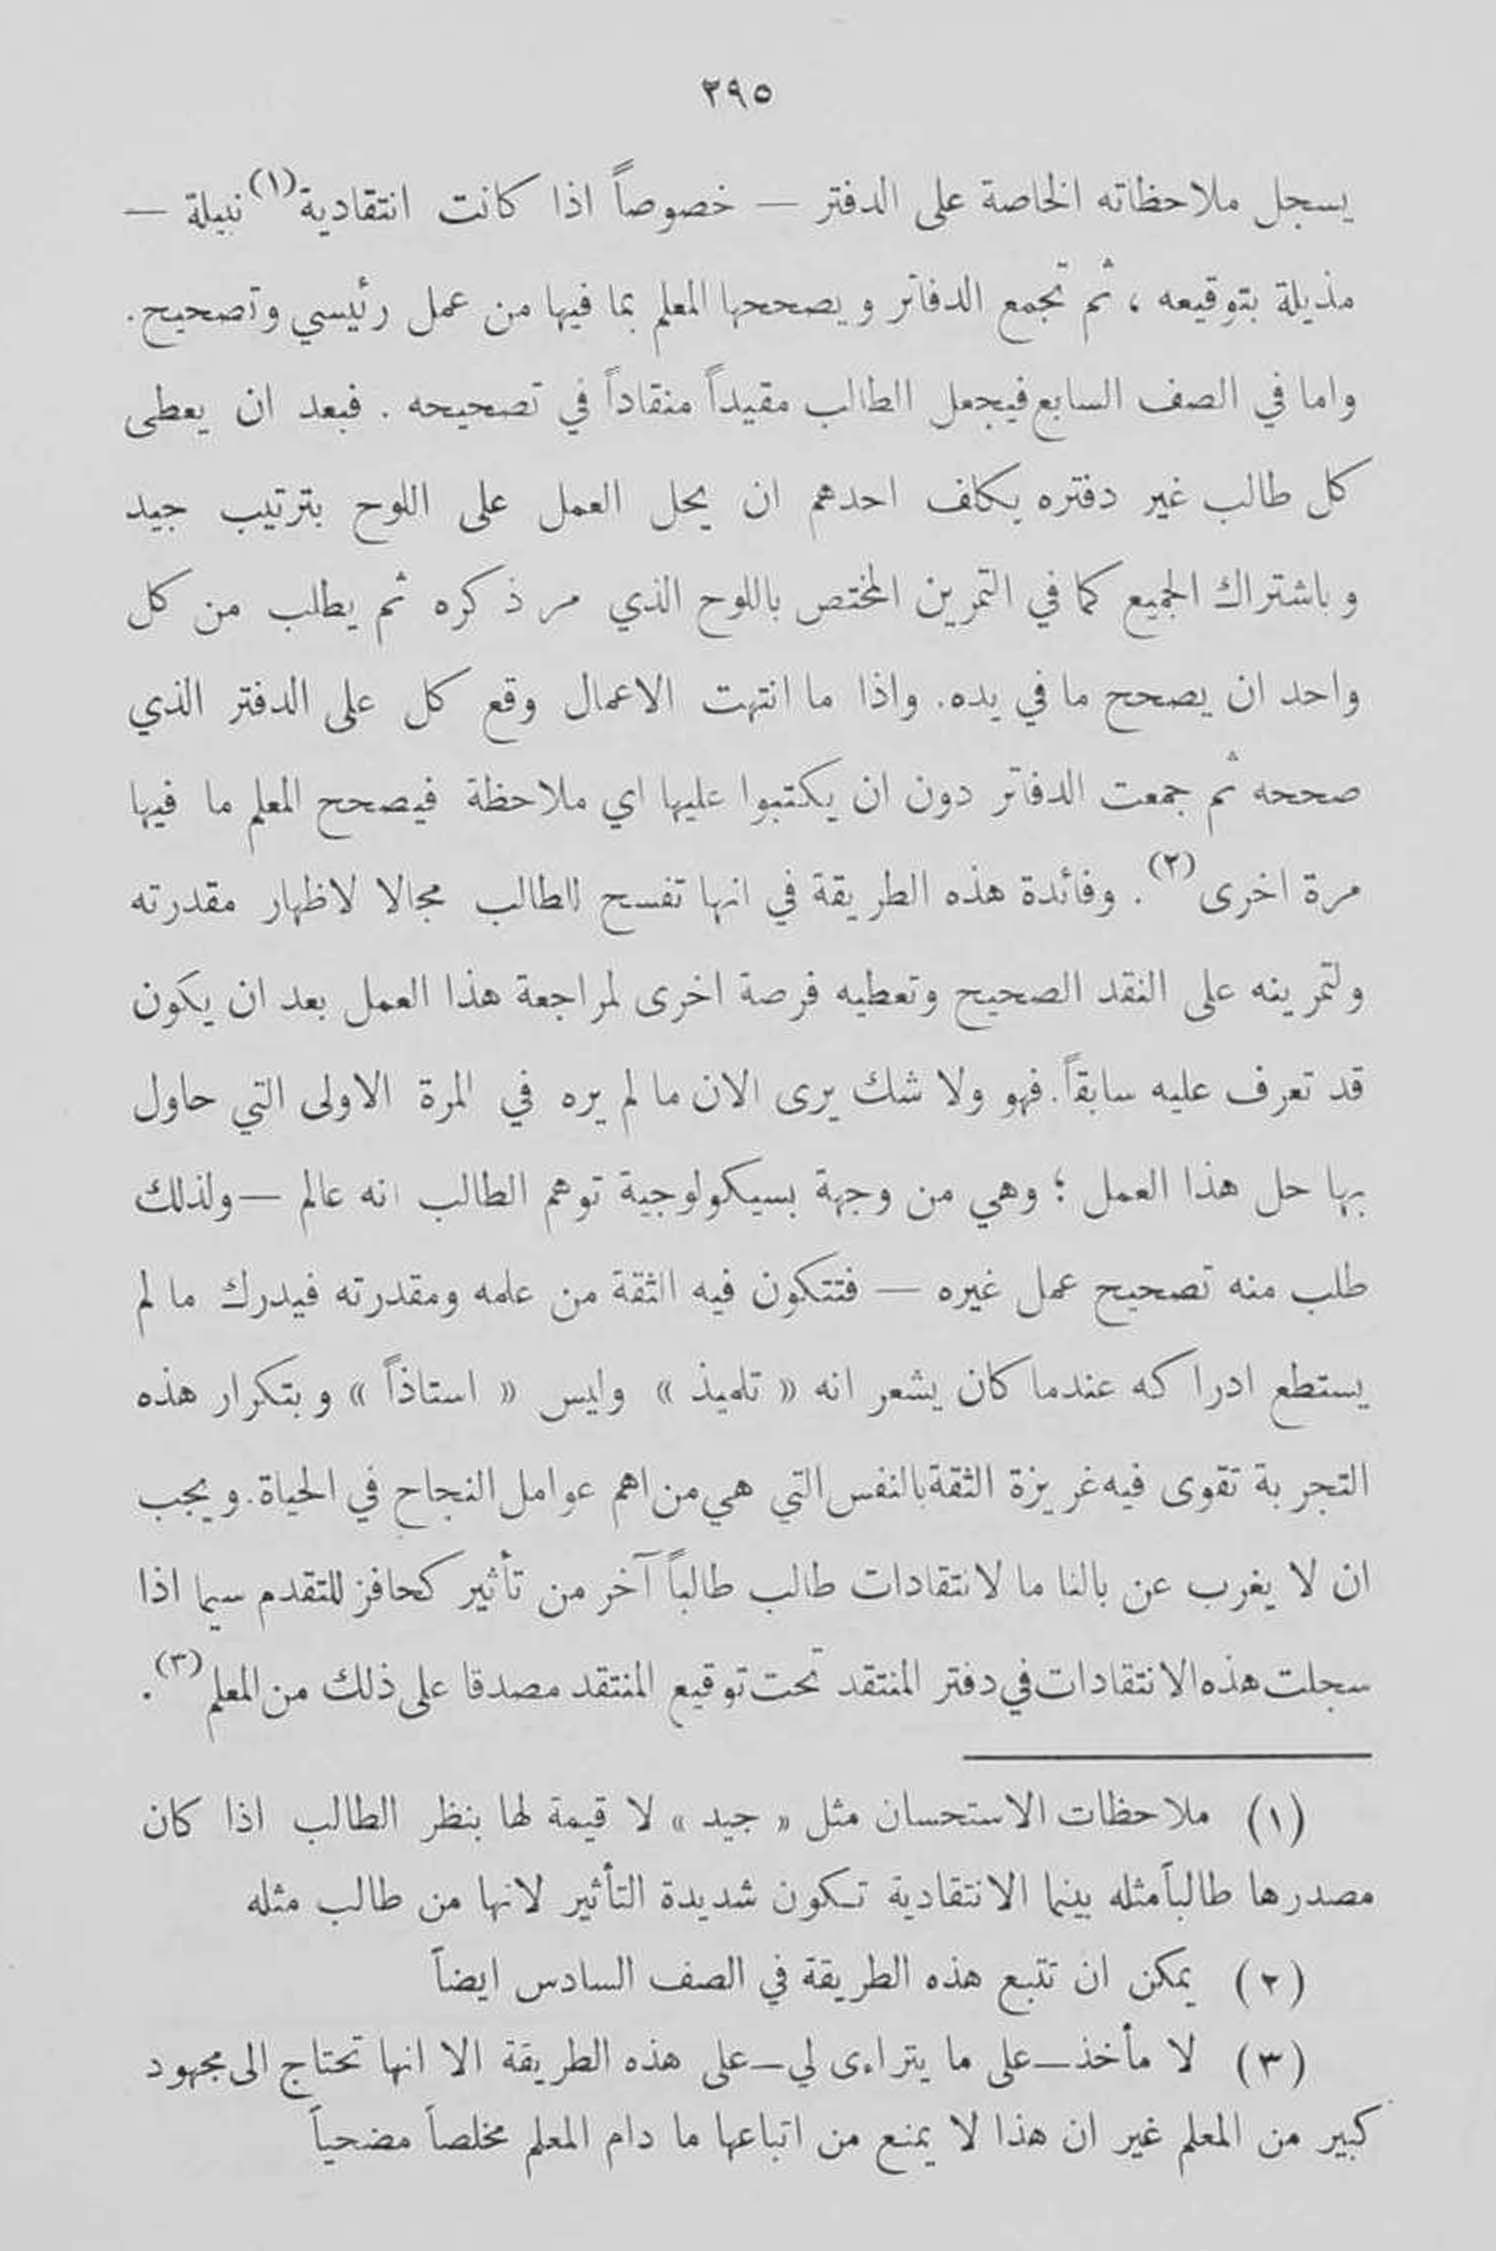 ٢٩٥
يسجل ملاحظاته الخاصة على الدفتر — خصوصاً اذا كانت انتقادية(١) نبيلة —
مذيلة بتوقيعه ، ثم تجمع الدفاتر ويصححها المعلم بما فيها من عمل رئيسي وتصحيح.
واما في الصف السابع فيجعل الطالب مقيداً منقاداً في تصحيحه . فبعد ان يعطى
كل طالب غير دفتره يكلف احدهم ان يحل العمل على اللوح بترتيب جيد
وباشتراك الجميع كما في التمرين المختص باللوح الذي مر ذكره ثم يطلب من كل
واحد ان يصحح ما في يده. واذا ما انتهت الاعمال وقع كل على الدفتر الذي
صححه ثم جمعت الدفاتر دون ان يكتبوا عليها اي ملاحظة فيصحح المعلم ما فيها
مرة اخرى(٢) . وفائدة هذه الطريقة في انها تفسح للطالب مجالا لاظهار مقدرته
ولتمرينه على النقد الصحيح وتعطيه فرصة اخرى لمراجعة هذا العمل بعد ان يكون
قد تعرف عليه سابقاً. فهو ولا شك يرى الان ما لم يره في المرة الاولى التي حاول
بها حل هذا العمل ؛ وهي من وجهة بسيكولوجية توهم الطالب انه عالم — ولذلك
طلب منه تصحيح عمل غيره — فتتكون فيه الثقة من علمه ومقدرته فيدرك ما لم
يستطع ادراكه عندما كان يشعر انه « تلميذ » وليس « استاذاً » وبتكرار هذه
التجربة تقوى فيه غريزة الثقة بالنفس التي هي من اهم عوامل النجاح في الحياة. ويجب
ان لا يغرب عن بالنا ما لانتقادات طالب طالباً آخر من تأثير كحافز للتقدم سيما اذا
سجلت هذه الانتقادات في دفتر المنتقد تحت توقيع المنتقد مصدقا على ذلك من المعلم(٣) .
(١) ملاحظات الاستحسان مثل « جيد » لا قيمة لها بنظر الطالب اذا كان
مصدرها طالباً مثله بينما الانتقادية تكون شديدة التأثير لانها من طالب مثله
(٢) يمكن ان تتبع هذه الطريقة في الصف السادس ايضاً
(٣) لا مأخذ — على ما يتراءى لي — على هذه الطريقة الا انها تحتاج الى مجهود
كبير من المعلم غير ان هذا لا يمنع من اتباعها ما دام المعلم مخلصاً مضحياً